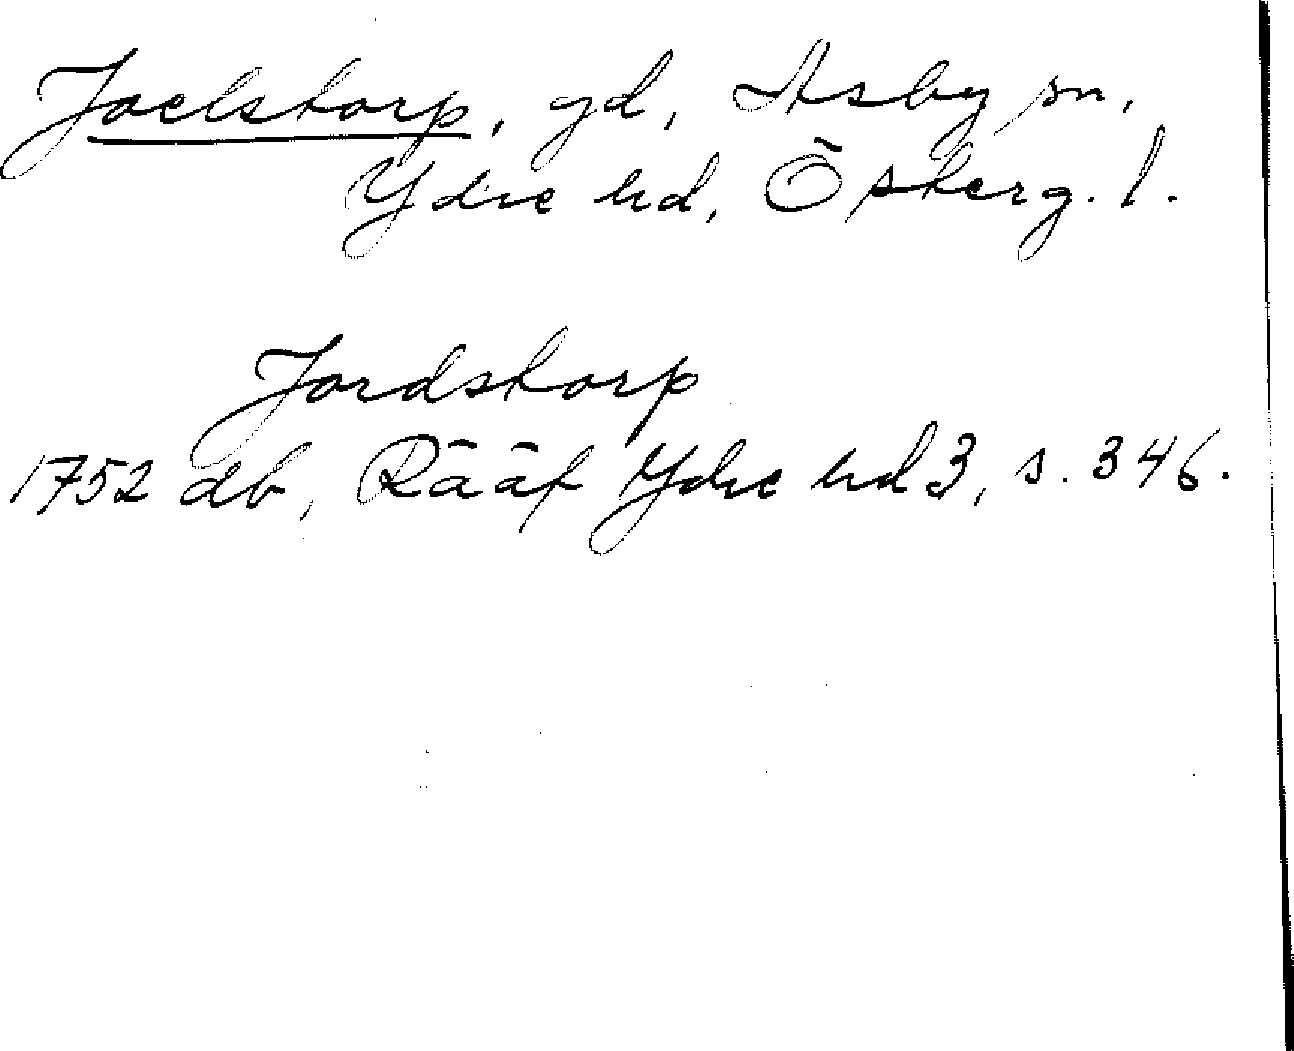 Joelstorp, gd, Asby sn,
Ydre hd, Österg. l.
Jordstorp
1752 db, Rääf Ydre hd 3, s. 346.